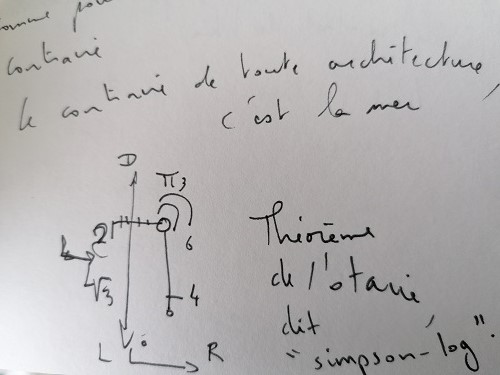 contraire
le contraire de toute architecture,
c'est la mer
D
π 3
2
6
L
√3
4
L
R
Théorème
de l'otarie
dit
"simpson-log".